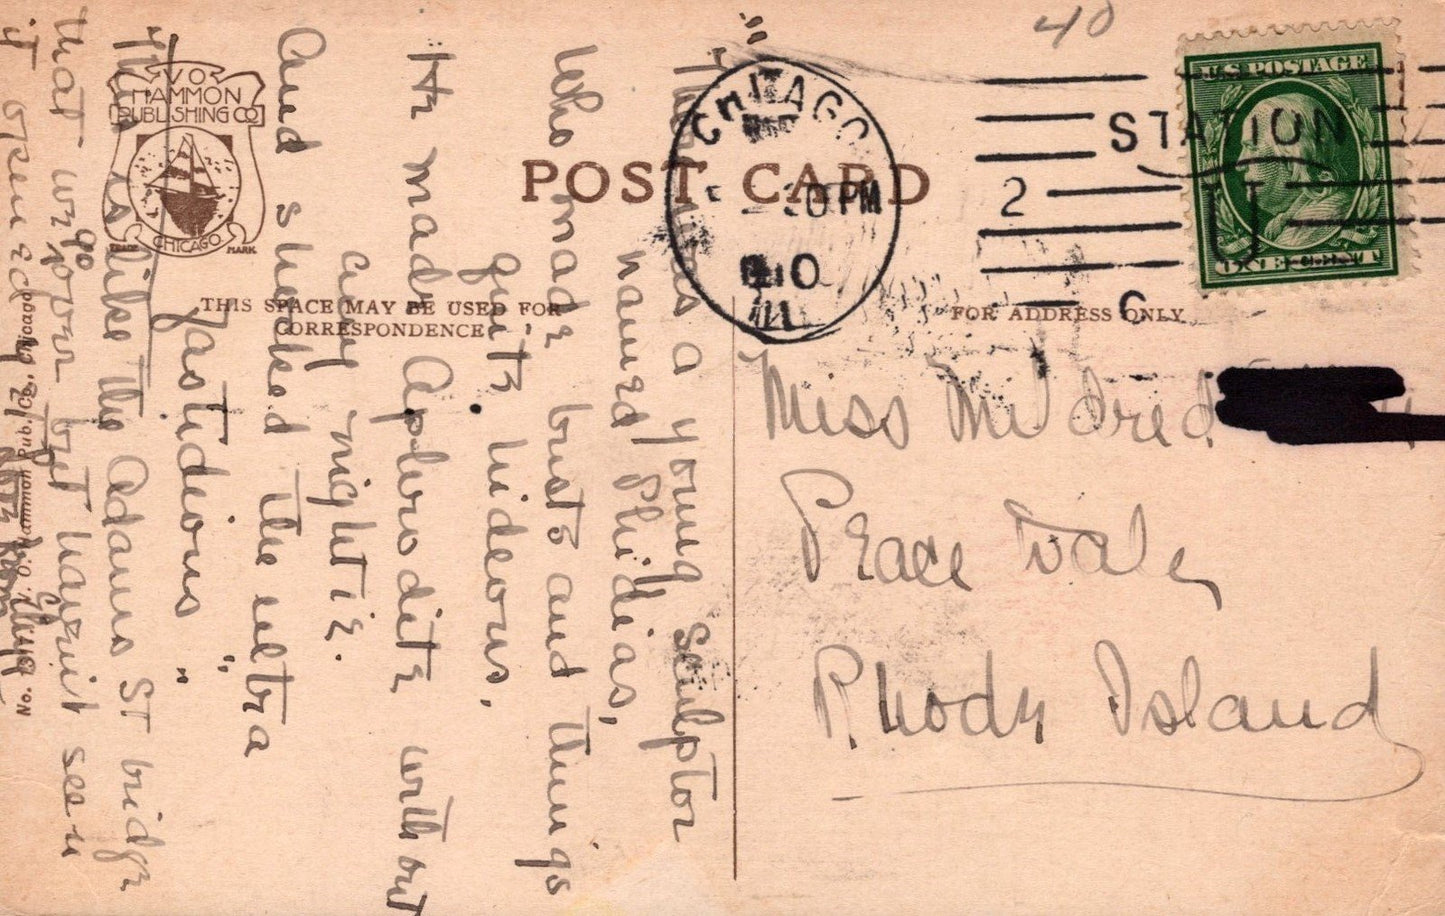 40
U.S. POSTAGE
ONE CENT
CHICAGO
30 PM
ILL
STATION
U
2
C
POST CARD
V O
HAMMON
PUBLISHING CO
CHICAGO
TRADE MARK
THIS SPACE MAY BE USED FOR
CORRESPONDENCE
FOR ADDRESS ONLY
Miss Mildred
Peace Dale,
Rhode Island
"There was a young sculptor
named Phidias,
Who made busts and things
quite hideous,
He made Aphrodite without
any nightie.
And shocked the ultra
fastideous"
This is like the Adams St bridge
that we go over but haven't seen
it open
No. V. O. Hammon Pub. Co., Chicago